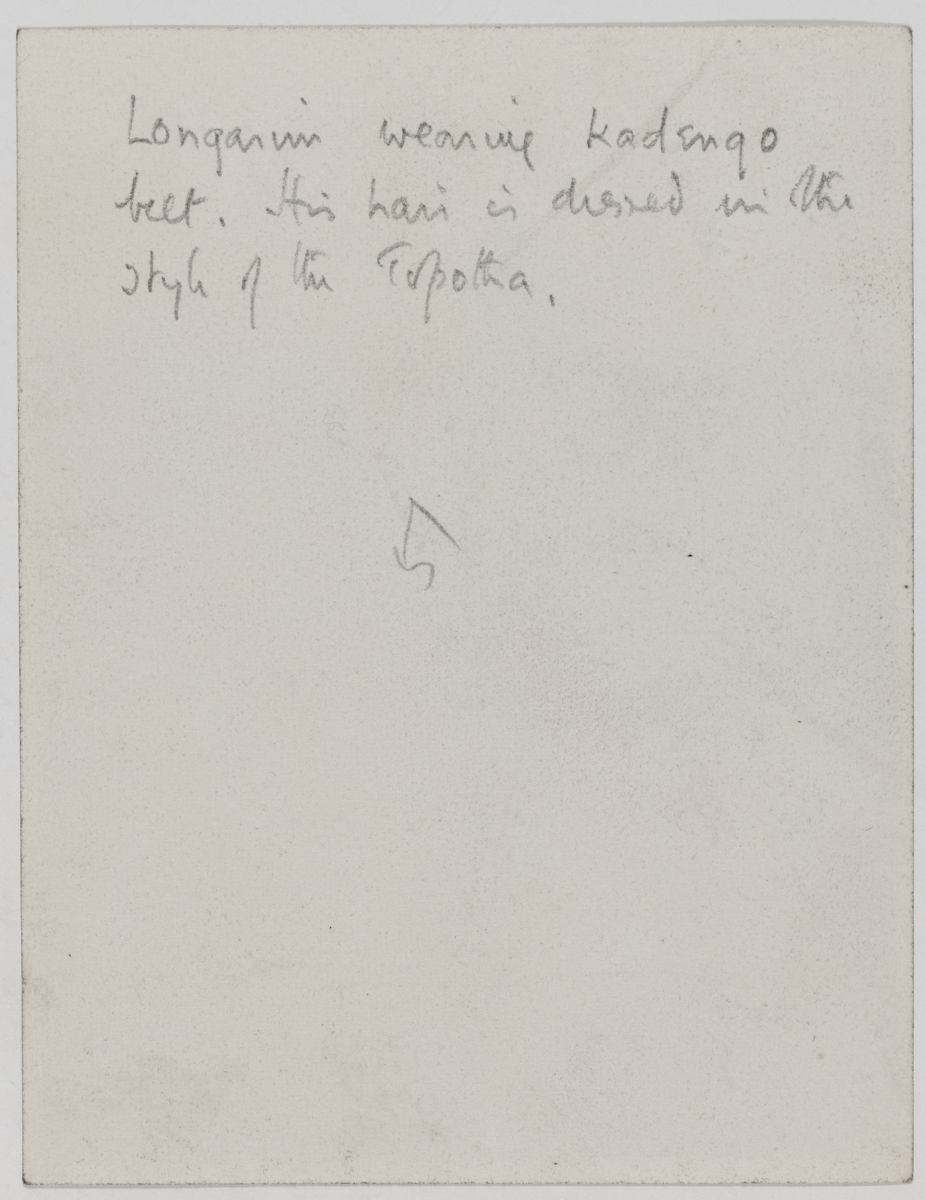 Longarim wearing kadengo
belt. His hair is dressed in the
style of the Topotha.